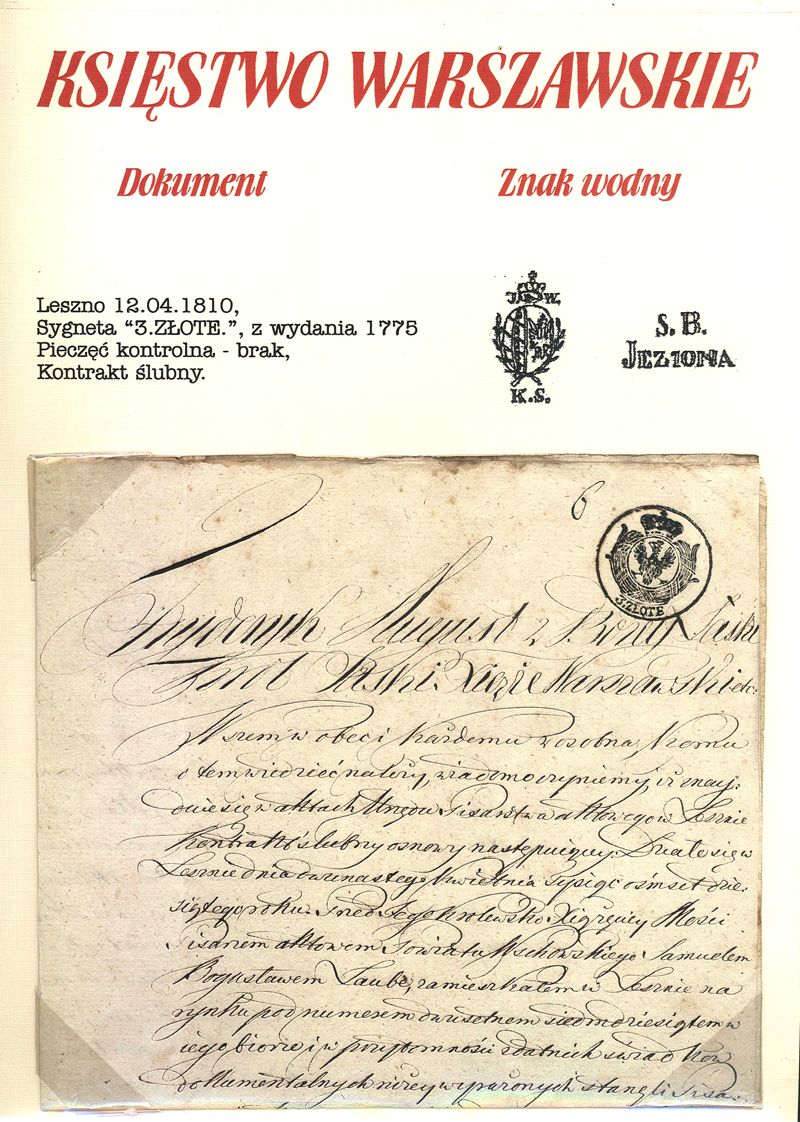 KSIĘSTWO WARSZAWSKIE
Dokument
Znak wodny
Leszno 12.04.1810,
Sygneta “3.ZŁOTE.”, z wydania 1775
Pieczęć kontrolna - brak,
Kontrakt ślubny.
J. S W.
K.S.
S. B.
JEZIONA
6
3.ZŁOTE
Fryderyk August z Bożey Łaski
Krol Saski Xiąże Warszawski etc:
Wszem w obec i każdemu z osobna, komu
o tem wiedzieć należy, wiadomo czyniemy, iż znay:
duie się w aktach Urzędu Pisarstwa aktowego w Lesznie
Kontrakt ślubny osnowy następuiącey. Działo się w
Lesznie dnia dwunastego Kwietnia Tysiąc ośmset dzie:
siątego roku. Przed Jego Krolewsko Xiążęcey Mości
Pisarzem aktowem Powiatu Wschowskiego Samuelem
Bogusławem Laube, zamieszkałem w Lesznie na
rynku pod numerem dwusetnem siedmdziesiątem w
iego biorze i w przytomności zdatnich świadkow
dokumentalnych niżey wyrażonych stanęli Pisa: